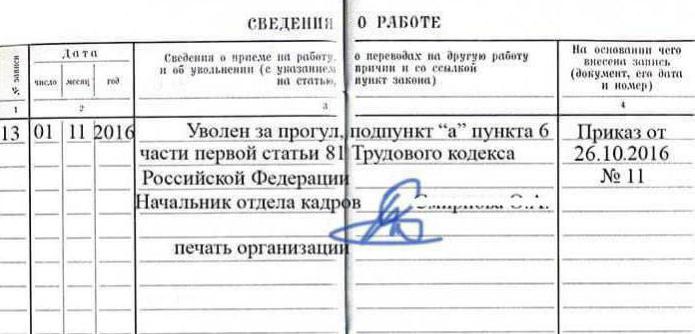 СВЕДЕНИЯ О РАБОТЕ
№ записи
Дата
Сведения о приеме на работу, о переводах на другую работу
и об увольнении (с указанием причин и со ссылкой
на статью, пункт закона)
На основании чего
внесена запись
(документ, его дата
и номер)
число месяц год
1 2 3 4
13 01 11 2016 Уволен за прогул, подпункт “а” пункта 6 Приказ от
части первой статьи 81 Трудового кодекса 26.10.2016
Российской Федерации № 11
Начальник отдела кадров Смирнова О.А.
печать организации